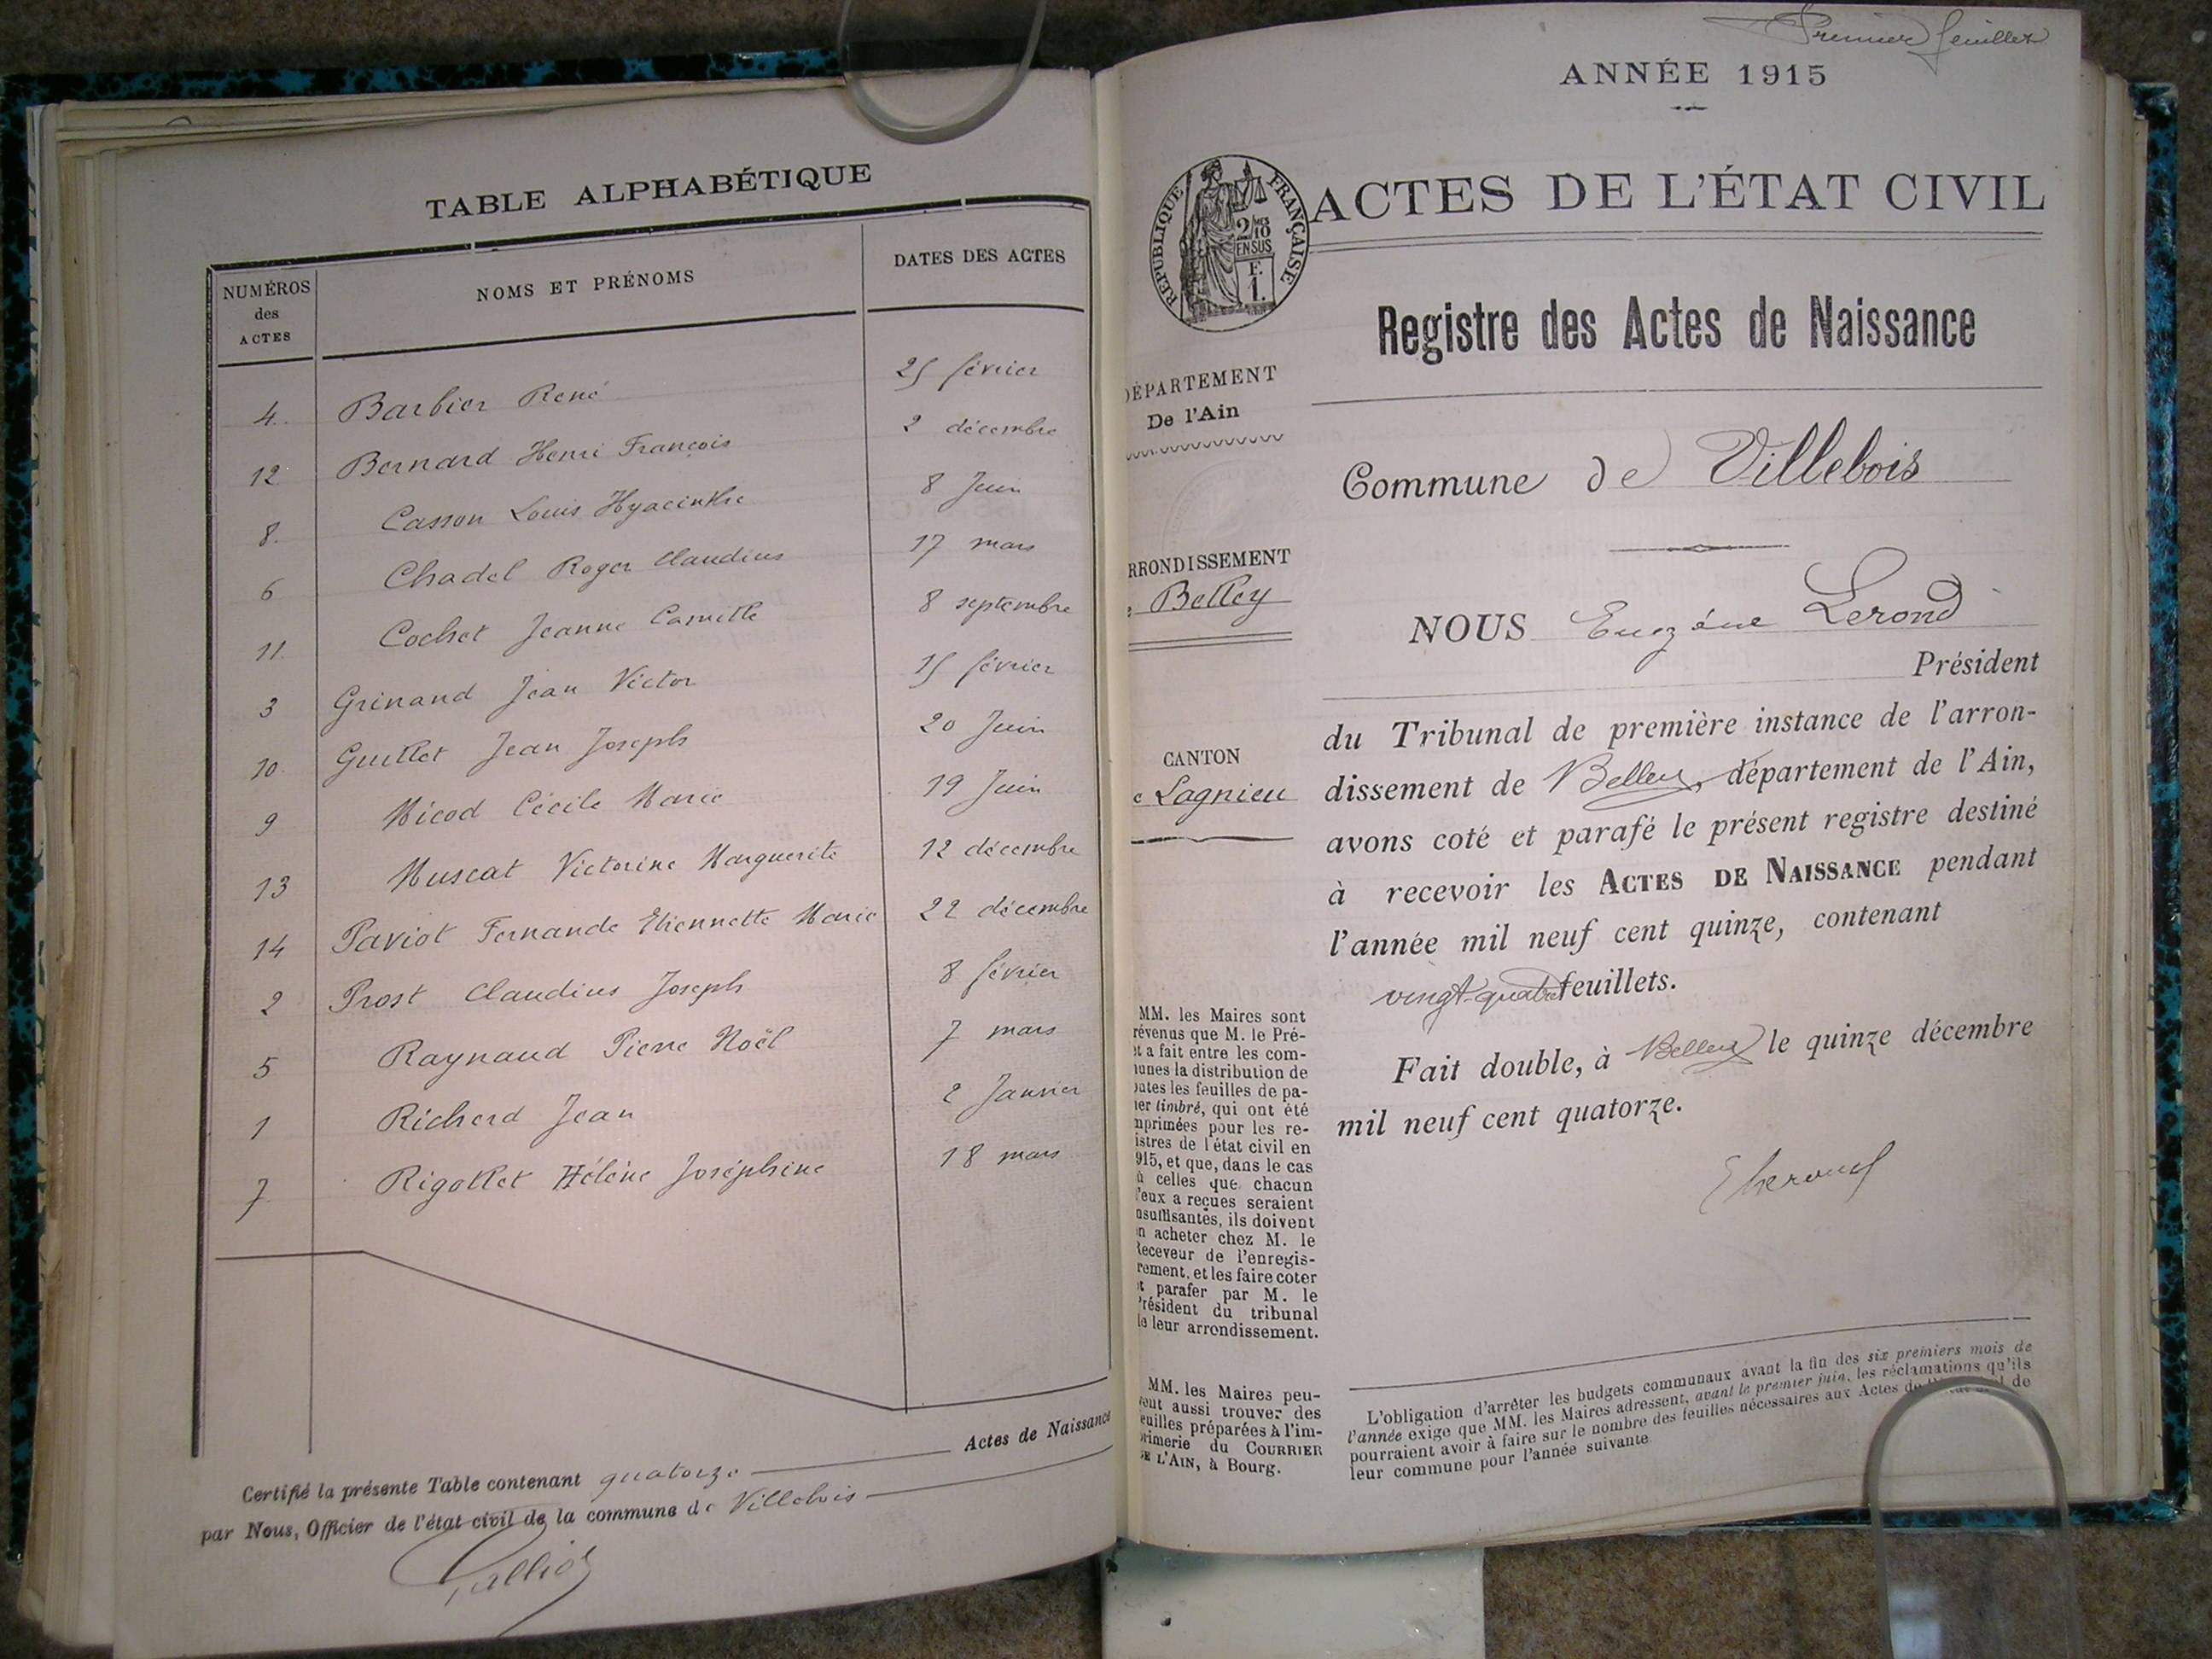 TABLE ALPHABÉTIQUE
NUMÉROS des ACTES
NOMS ET PRÉNOMS
DATES DES ACTES
4. Barbier René 25 février
12 Bernard Henri François 2 décembre
8. Casson Louis Hyacinthe 8 Juin
6 Chadel Roger Claudius 17 mars
11. Cochet Jeanne Camille 8 septembre
3 Grinand Jean Victor 15 février
10 Guillet Jean Joseph 20 Juin
9 Nicod Cécile Marie 19 Juin
13 Muscat Victorine Marguerite 12 décembre
14 Paviot Fernande Etiennette Marie 22 décembre
2 Prost Claudius Joseph 8 février
5 Raynaud Pierre Noël 7 mars
1 Richerd Jean 2 Janvier
7 Rigollet Hélène Joséphine 18 mars
Certifié la présente Table contenant quatorze Actes de Naissance
par Nous, Officier de l'état civil de la commune de Villebois
Premier feuillet
ANNÉE 1915
RÉPUBLIQUE FRANÇAISE
2/10 EN SUS
F. 1.
ACTES DE L'ÉTAT CIVIL
Registre des Actes de Naissance
DÉPARTEMENT
De l'Ain
Commune de Villebois
RRONDISSEMENT
Belley
NOUS Eugène Lerond
Président
CANTON
Lagnieu
du Tribunal de première instance de l'arron-
dissement de Belley, département de l'Ain,
avons coté et parafé le présent registre destiné
à recevoir les ACTES DE NAISSANCE pendant
l'année mil neuf cent quinze, contenant
vingt-quatre feuillets.
Fait double, à Belley le quinze décembre
mil neuf cent quatorze.
MM. les Maires sont
révenus que M. le Pré-
t a fait entre les com-
unes la distribution de
utes les feuilles de pa-
ier timbré, qui ont été
mprimées pour les re-
istres de l'état civil en
915, et que, dans le cas
ù celles que chacun
'eux a reçues seraient
nsuffisantes, ils doivent
n acheter chez M. le
Receveur de l'enregis-
rement, et les faire coter
t parafer par M. le
Président du tribunal
e leur arrondissement.
MM. les Maires peu-
vent aussi trouver des
euilles préparées à l'im-
rimerie du COURRIER
DE L'AIN, à Bourg.
L'obligation d'arrêter les budgets communaux avant la fin des six premiers mois de
l'année exige que MM. les Maires adressent, avant le premier juin, les réclamations qu'ils
pourraient avoir à faire sur le nombre des feuilles nécessaires aux Actes de l'état civil de
leur commune pour l'année suivante.